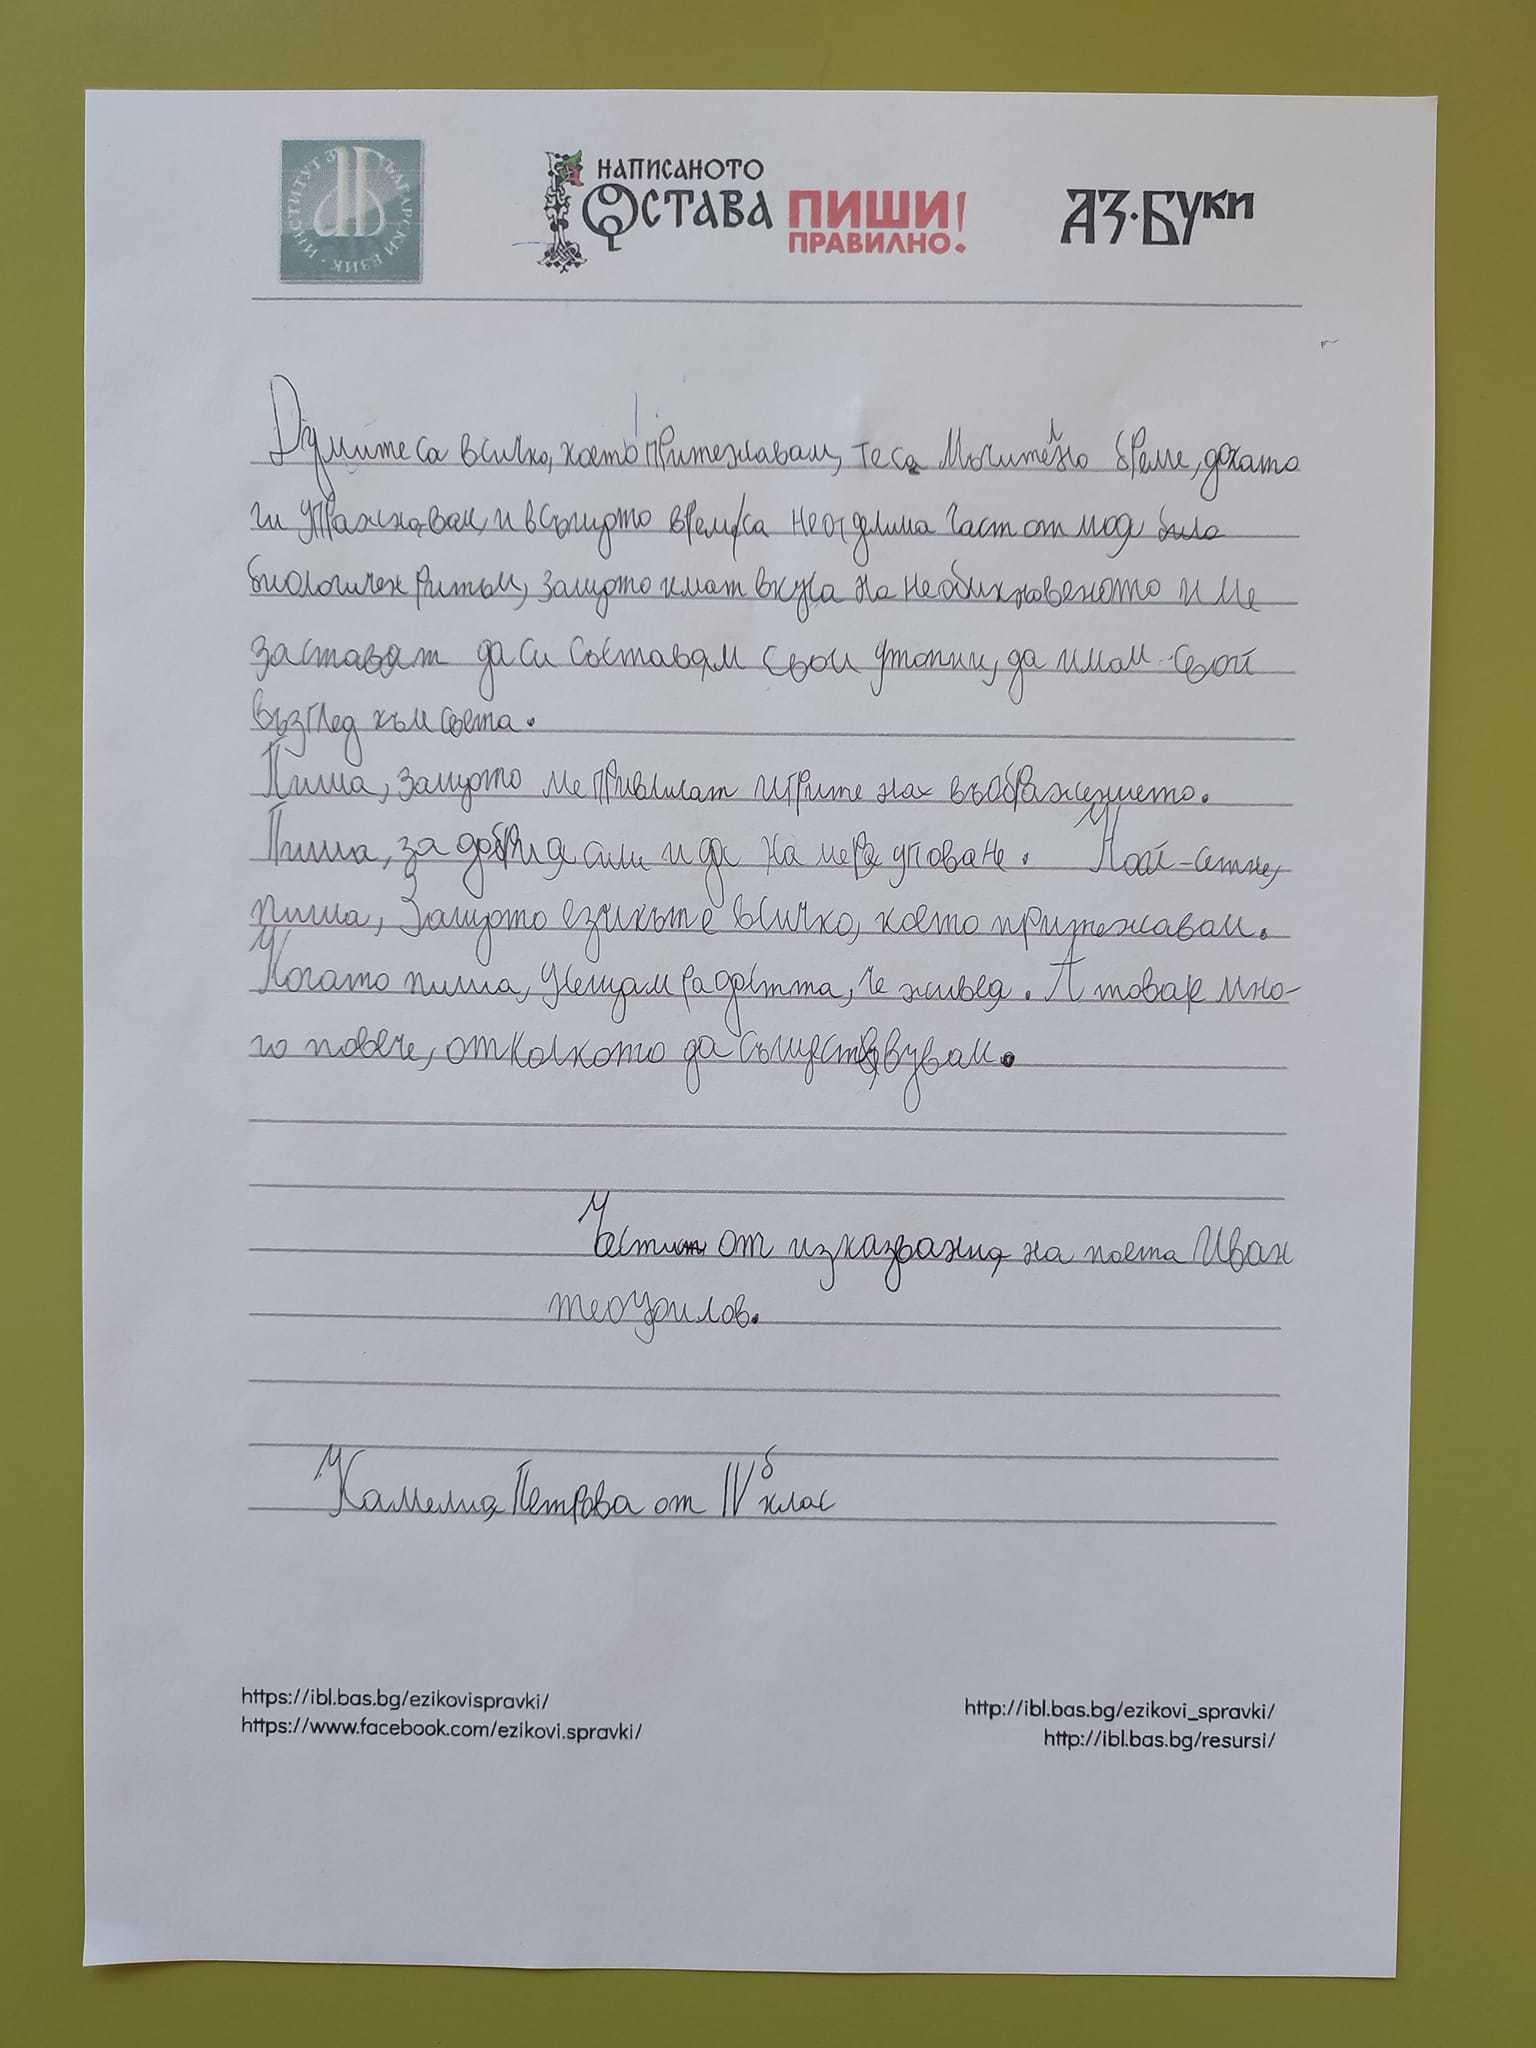 ИНСТИТУТ ЗА БЪЛГАРСКИ ЕЗИК
НАПИСАНОТО
ОСТАВА
ПИШИ
ПРАВИЛНО!
АЗ·БУКИ
Думите са всичко, което притежавам, те са мъчително бреме, докато
ги упражнявам, и в същото време са неотделима част от моя било
биологичен ритъм, защото имат вкуса на необикновеното и ме
заставят да си съставям свои утопии, да имам свой
възглед към света.
Пиша, защото ме привличат игрите на въображението.
Пиша, за да бъдещи и да намеря упование. Най-сетне,
пиша, защото езикът е всичко, което притежавам.
Когато пиша, усещам радостта, че живея. А това е мно-
го повече, отколкото да съществувам.
Части от изказвания на поета Иван
теофилов.
Камелия Петрова от IV б клас
https://ibl.bas.bg/ezikovispravki/
https://www.facebook.com/ezikovi.spravki/
http://ibl.bas.bg/ezikovi_spravki/
http://ibl.bas.bg/resursi/